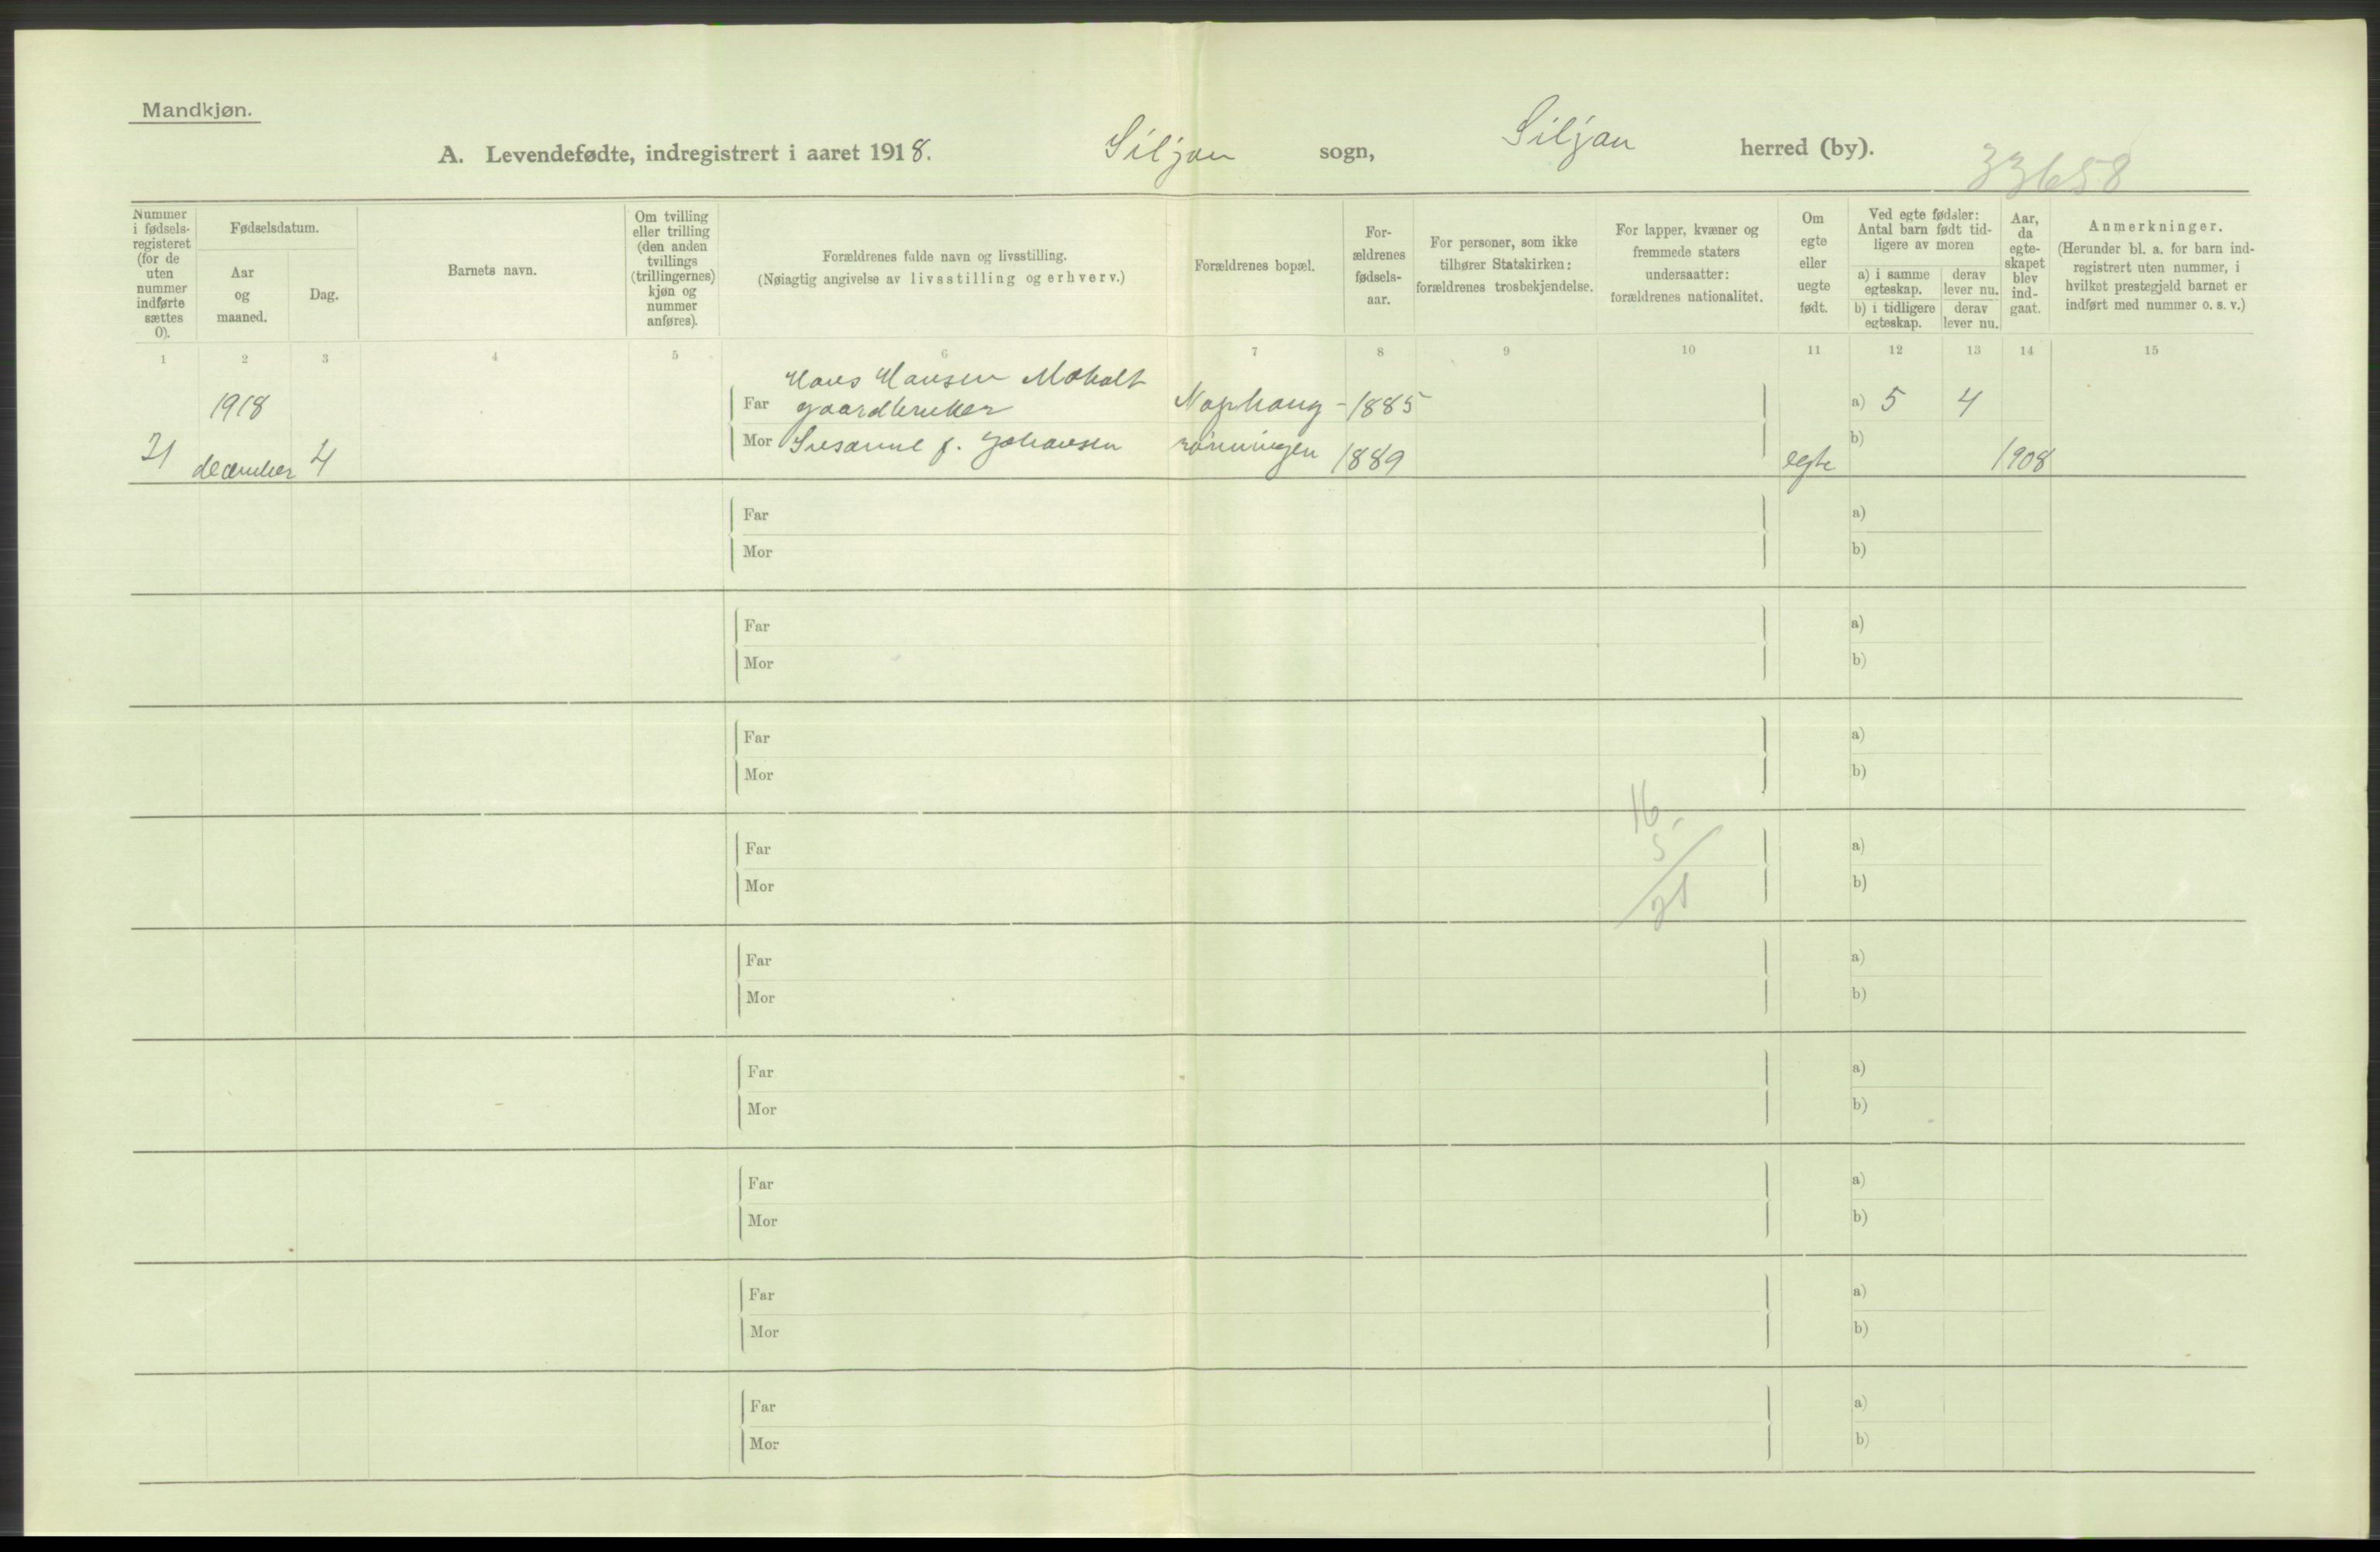 Mandkjøn.
A. Levendefødte, indregistrert i aaret 1918. Siljan sogn, Siljan herred (by). 33658
Nummer i fødsels-registeret (for de uten nummer indførte sættes 0).
Fødselsdatum.
Aar og maaned.
Dag.
Barnets navn.
Om tvilling eller trilling (den anden tvillings (trillingernes) kjøn og nummer anføres).
Forældrenes fulde navn og livsstilling.
(Nøiagtig angivelse av livsstilling og erhverv.)
Forældrenes bopæl.
For-ældrenes fødsels-aar.
For personer, som ikke tilhører Statskirken: forældrenes trosbekjendelse.
For lapper, kvæner og fremmede staters undersaatter: forældrenes nationalitet.
Om egte eller uegte født.
Ved egte fødsler: Antal barn født tid-ligere av moren
a) i samme egteskap.
derav lever nu.
b) i tidligere egteskap.
derav lever nu.
Aar, da egte-skapet blev ind-gaat.
Anmerkninger.
(Herunder bl. a. for barn ind-registrert uten nummer, i hvilket prestegjeld barnet er indført med nummer o. s. v.)
1 2 3 4 5 6 7 8 9 10 11 12 13 14 15
Hans Hansen Moholt
1918 Far gaardbruker 1885 a) 5 4
21 december 4 Mor Susanne f. Johansen rønningen 1889 egte b) 1908
Far a)
Mor b)
Far a)
Mor b)
Far a)
Mor b)
16
Far 5 a)
Mor 21 b)
Far a)
Mor b)
Far a)
Mor b)
Far a)
Mor b)
Far a)
Mor b)
Far a)
Mor b)